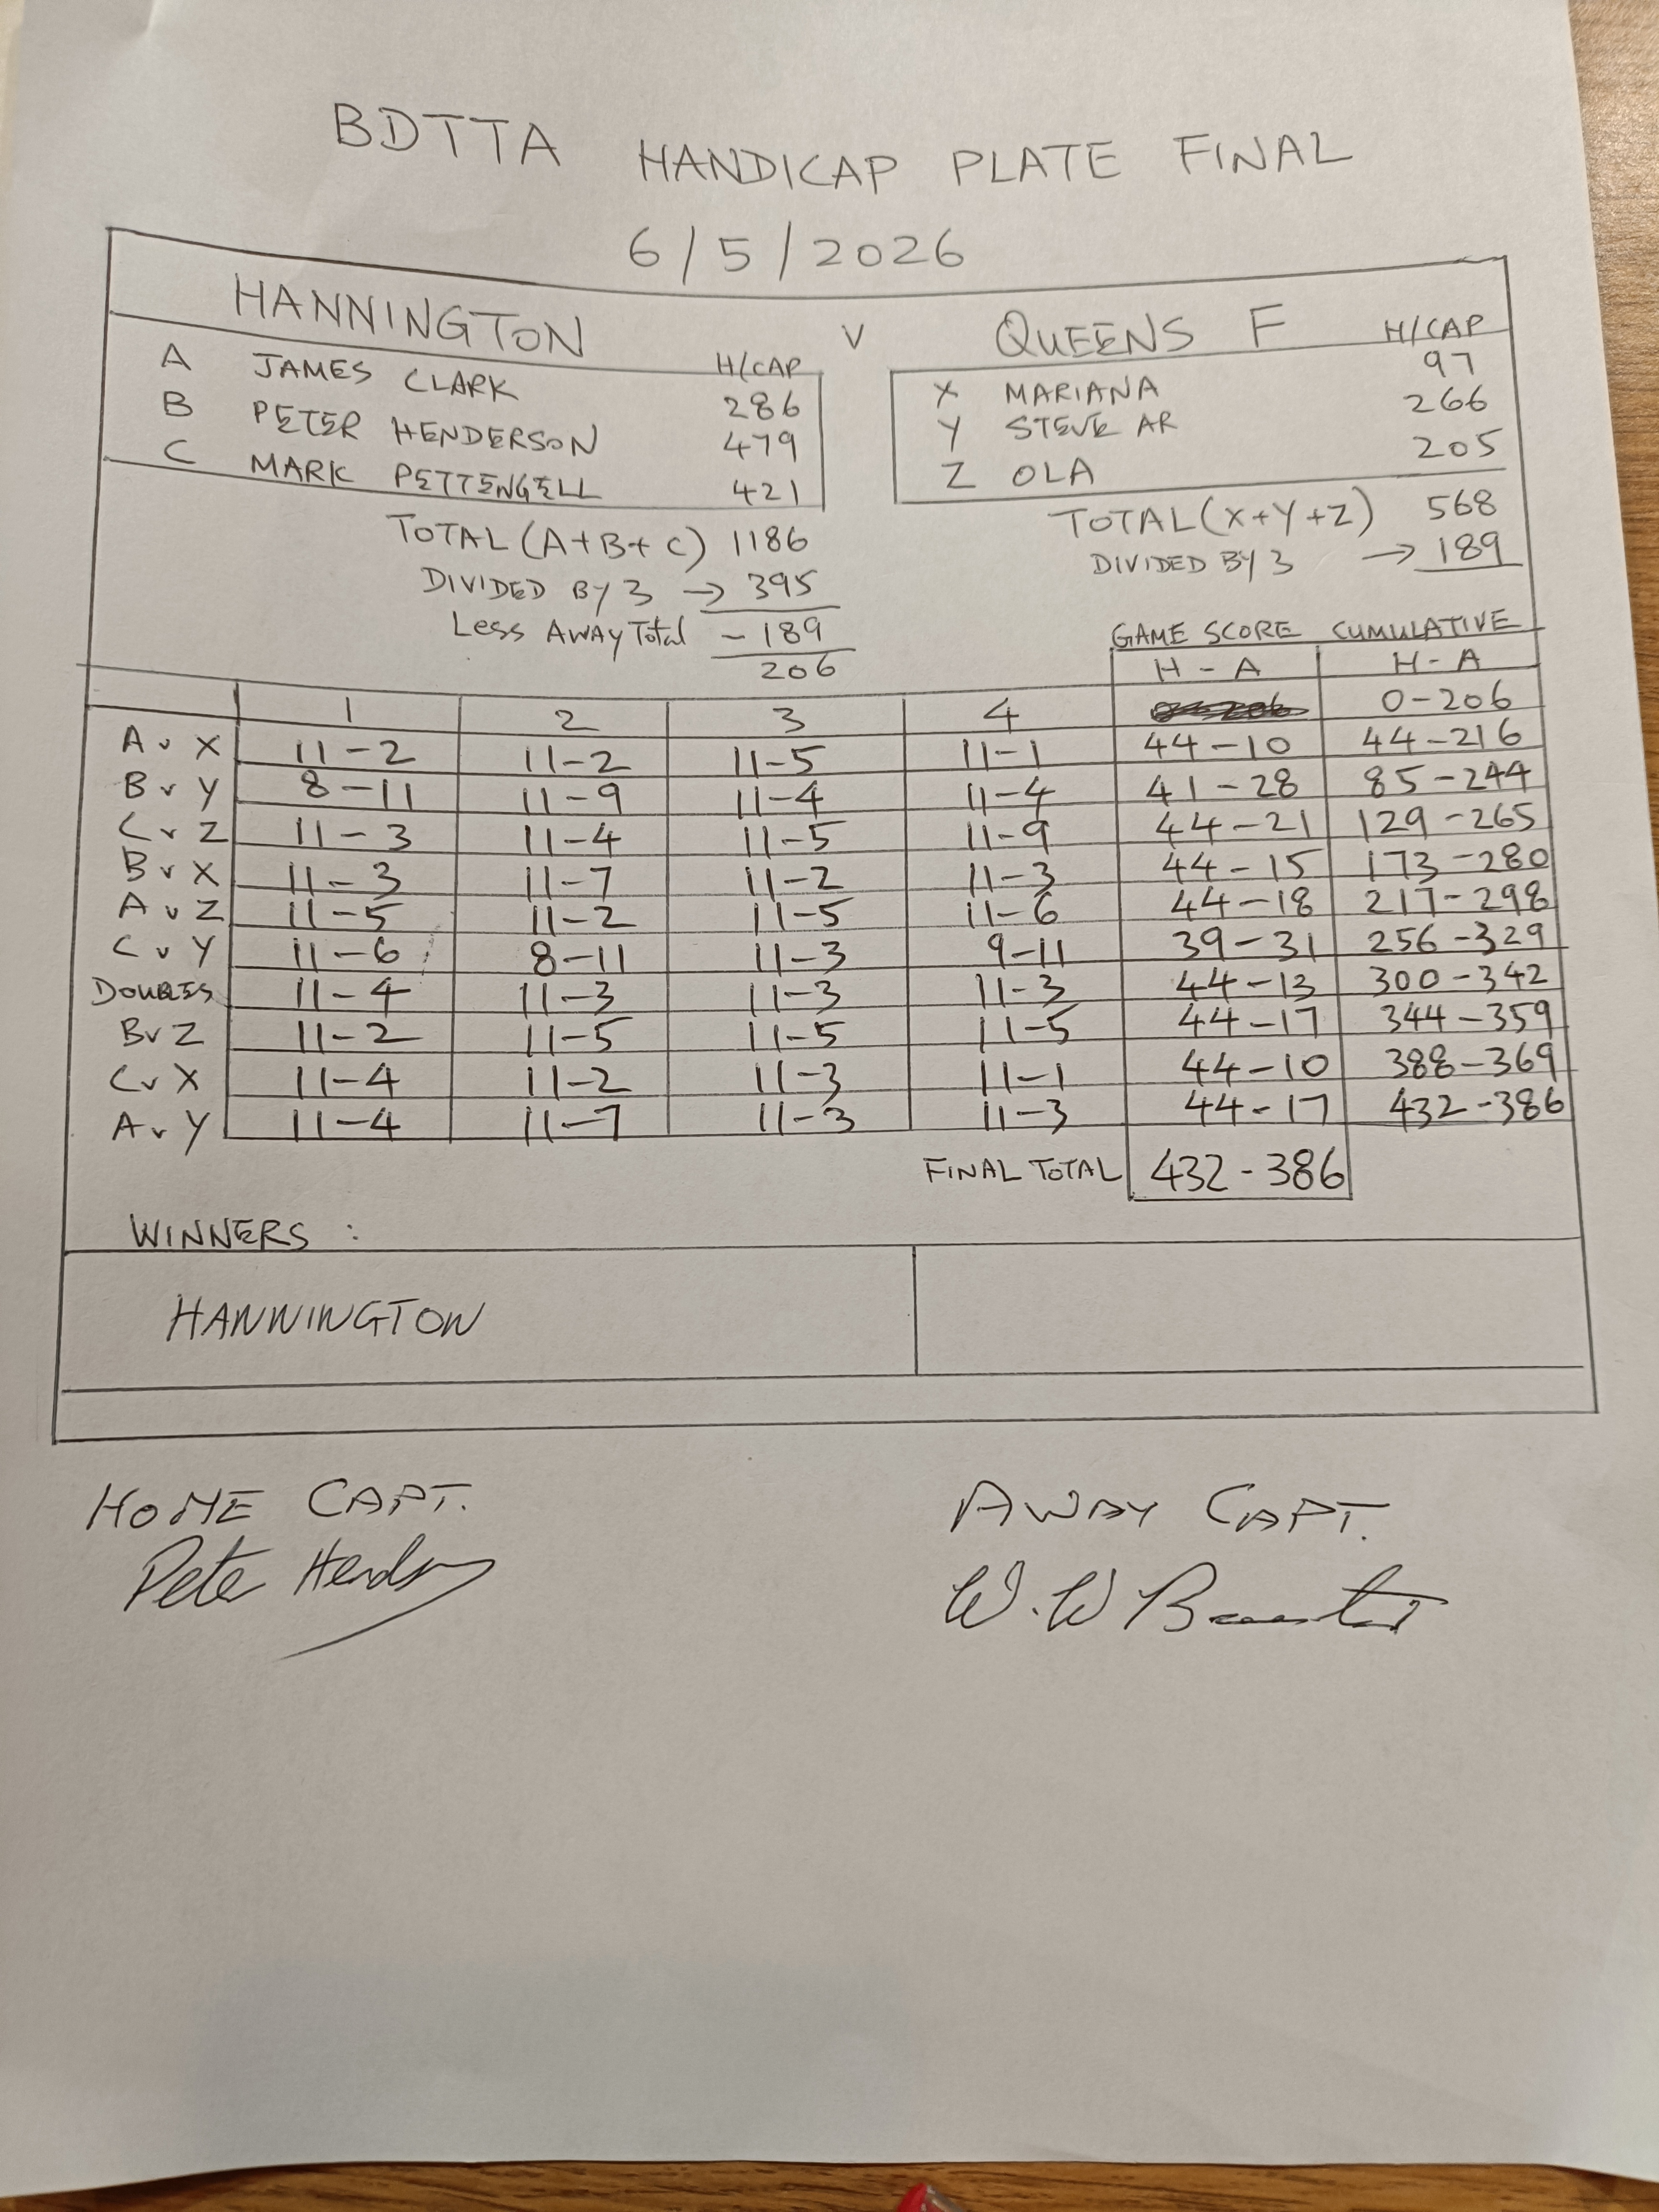 BDTTA HANDICAP PLATE FINAL
6/5/2026
HANNINGTON V QUEENS F H/CAP
H/CAP
A JAMES CLARK 286
B PETER HENDERSON 479
C MARK PETTENGELL 421
X MARIANA 97
Y STEVE AR 266
Z OLA 205
TOTAL (A+B+C) 1186
DIVIDED BY 3 → 395
LESS AWAY TOTAL -189
206
TOTAL (X+Y+Z) 568
DIVIDED BY 3 → 189
GAME SCORE CUMULATIVE
H - A H - A
1 2 3 4 0-206
A v X 11-2 11-2 11-5 11-1 44-10 44-216
B v Y 8-11 11-9 11-4 11-4 41-28 85-244
C v Z 11-3 11-4 11-5 11-9 44-21 129-265
B v X 11-3 11-7 11-2 11-3 44-15 173-280
A v Z 11-5 11-2 11-5 11-6 44-18 217-298
C v Y 11-6 8-11 11-3 9-11 39-31 256-329
DOUBLES 11-4 11-3 11-3 11-3 44-13 300-342
B v Z 11-2 11-5 11-5 11-5 44-17 344-359
C v X 11-4 11-2 11-3 11-1 44-10 388-369
A v Y 11-4 11-7 11-3 11-3 44-17 432-386
FINAL TOTAL 432-386
WINNERS :
HANNINGTON
HOME CAPT. AWAY CAPT.
Pete W.W